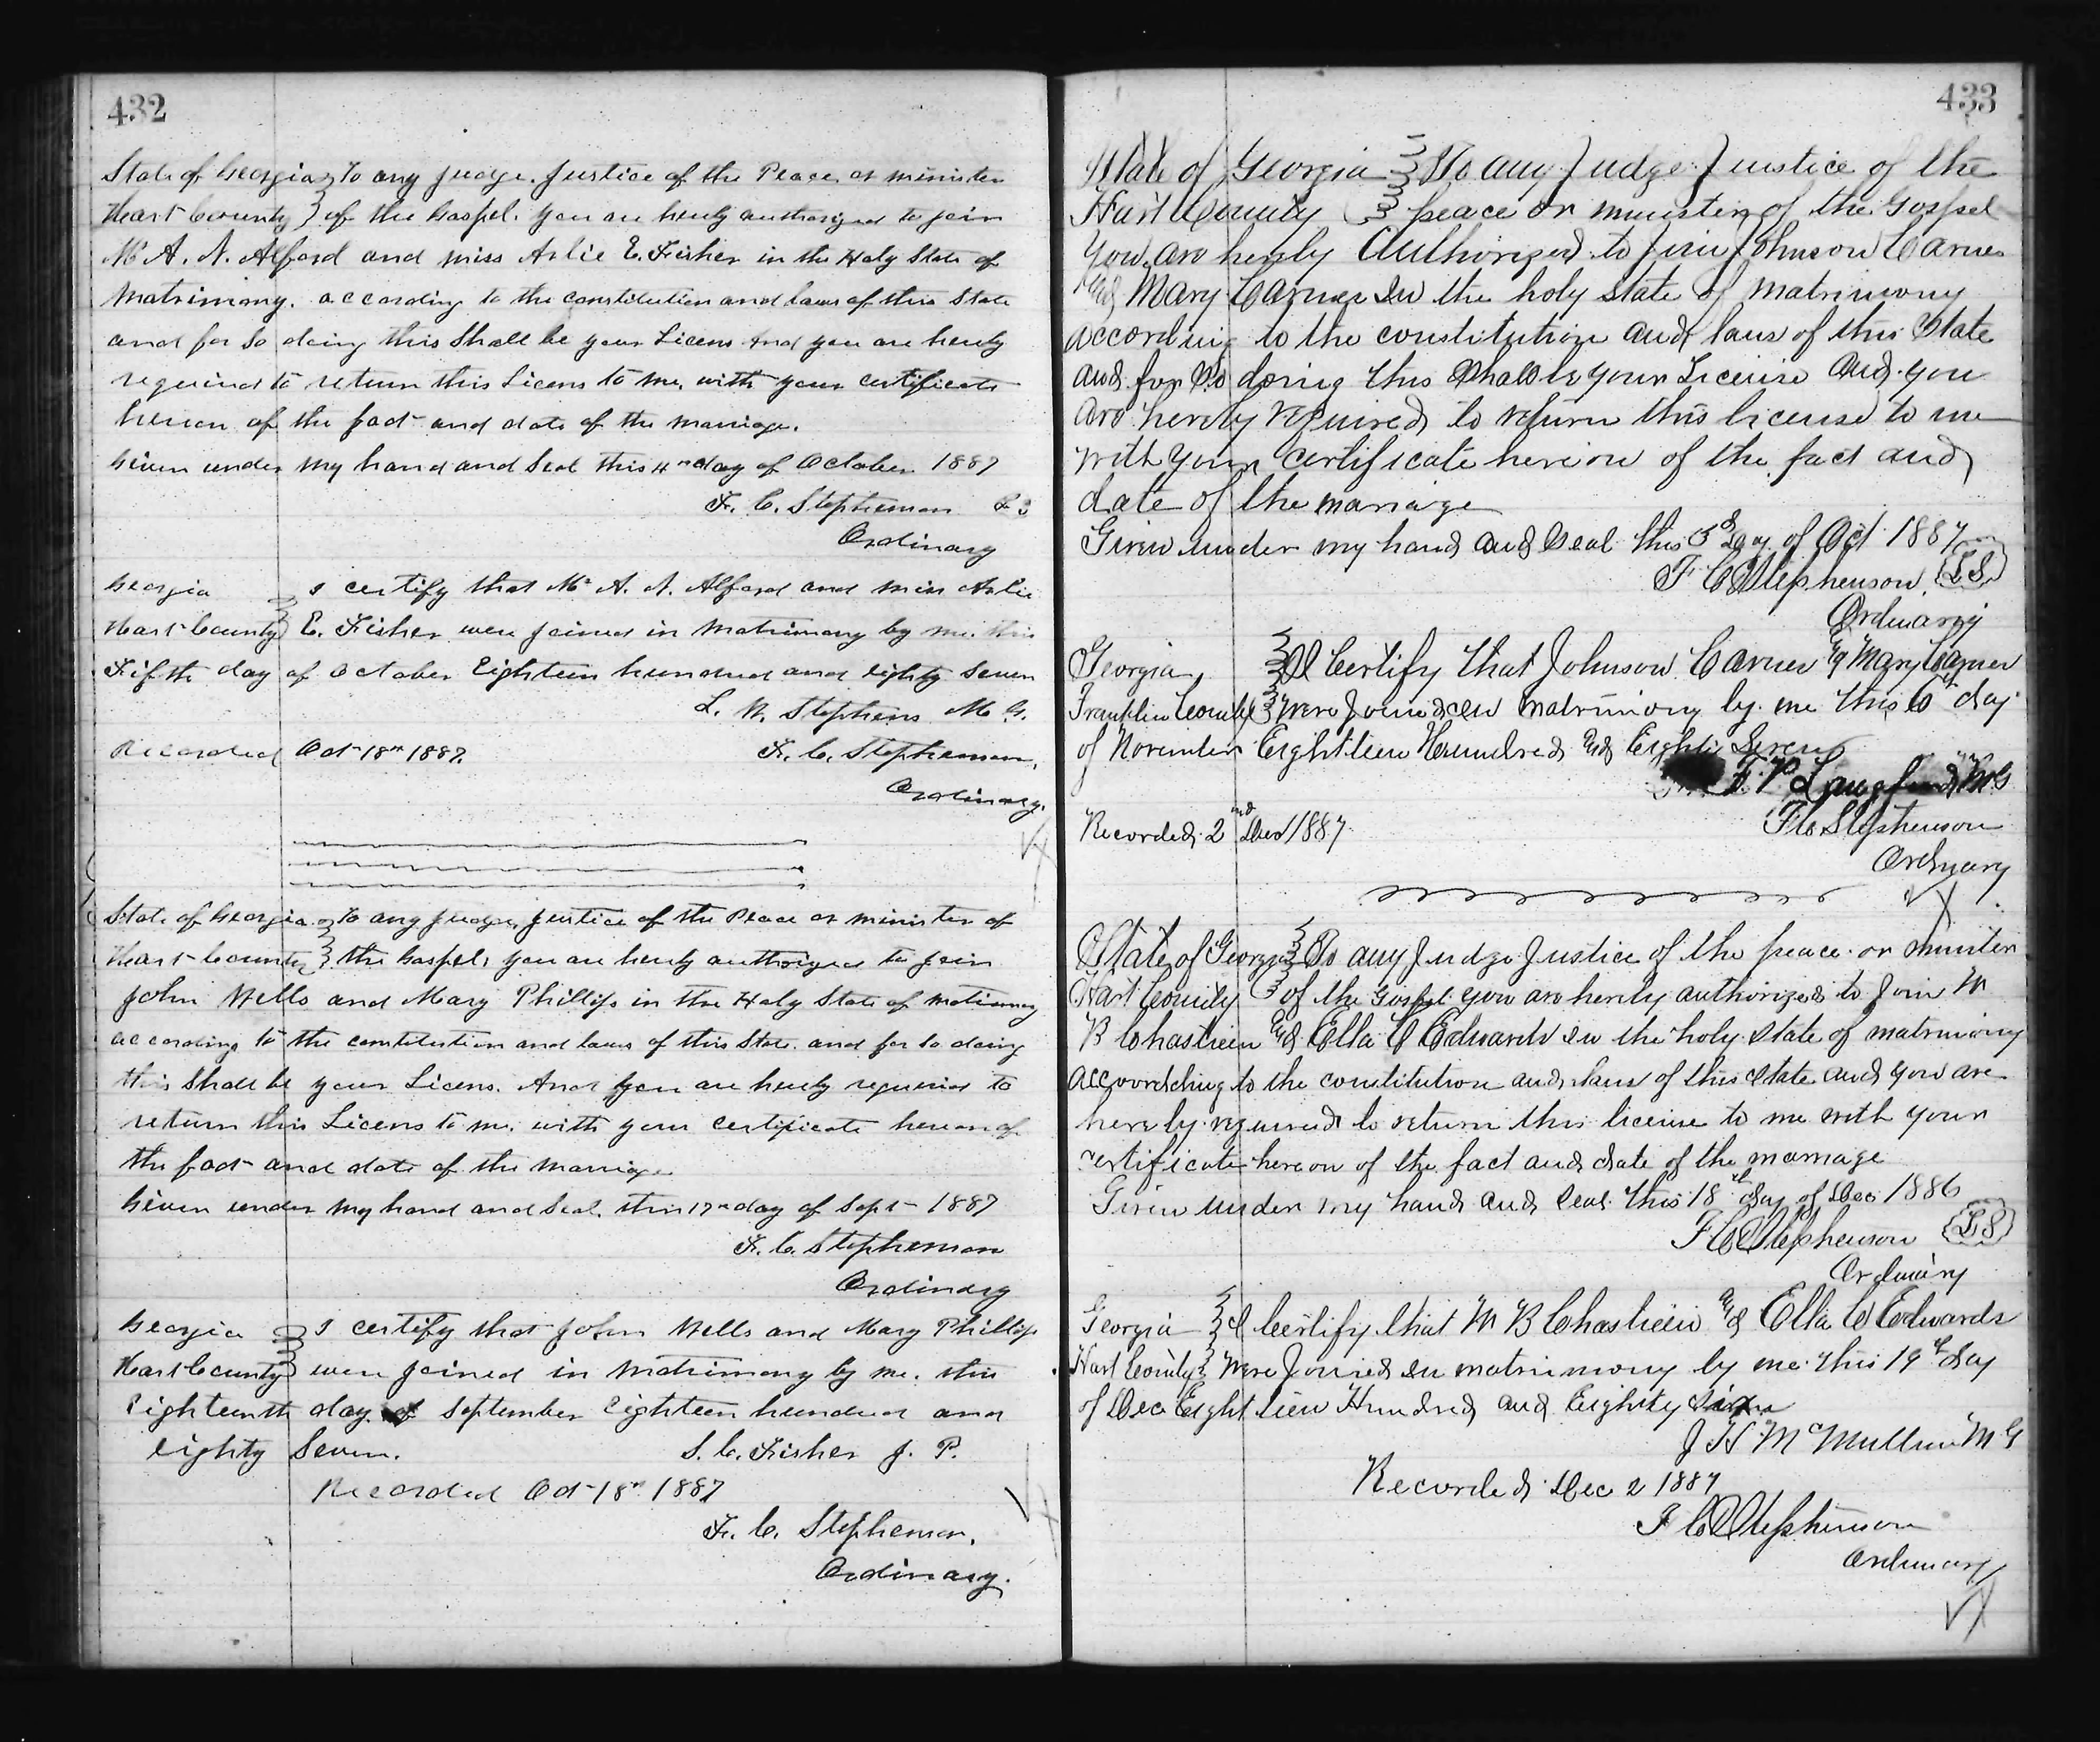 432
State of Georgia } To any Judge. Justice of the Peace or minister
Hart County } of the Gospel. You are herby authorized to join
Mr A. N. Alford and miss Arlie E. Fisher in the Holy State of
Matrimony. according to the constitution and laws of this State
and for So doing this Shall be your Licens And you are herby
required to return this Licens to me, with your certificate
hereon of the fact and date of the marriage.
Given under my hand and Seal this 4th day of October 1887
F. C. Stephenson L S
Ordinary
Georgia } I certify that Mr A. N. Alford and miss Arlie
Hart County } E. Fisher were joined in matrimony by me. this
Fifth day of October Eighteen hundred and eighty Seven
L. W. Stephens M. G.
Recorded Oct 18th 1887. F. C. Stephenson,
Ordinary.
State of Georgia } To any Judge, Justice of the Peace or minister of
Hart County } the Gospel, you are herby authorized to join
John Wells and Mary Phillips in the Holy State of matrimony
according to the constitution and laws of this State. and for so doing
this Shall be your Licens. And you are herby required to
return this Licens to me. with your certificate hereon of
the fact and date of the marriage.
Given under my hand and Seal. this 17th day of Sept 1887
F. C. Stephenson
Ordinary
Georgia } I certify that John Wells and Mary Phillips
Hart County } were joined in matrimony by me. this
Eighteenth day of September Eighteen hundred and
eighty Seven. S. C. Fisher J. P.
Recorded Oct 18th 1887
F. C. Stephenson,
Ordinary.
433
State of Georgia } To any Judge Justice of the
Hart County } peace or minister of the Gospel
You are herby Authorized to Join Johnson Carner
and Mary Carner In the holy state of matrimony
according to the constitution and laws of this State
and for So doing this Shall be your License and you
are hereby required to return this license to me
with your certificate hereon of the fact and
date of the marriage
Given under my hand and Seal this 5th day of Oct 1887
F C Stephenson LS
Ordinary
Georgia, } I Certify that Johnson Carner & Mary Carner
Franklin County } were Joined In matrimony by me this 6th day
of November Eighteen Hundred and Eighty Seven
F. P. Langford MG
Recorded 2nd Dec 1887 F C Stephenson
Ordinary
State of Georgia } To any Judge Justice of the peace or minister
Hart County } of the Gospel you are hereby authorized to Join M
B Chastieen and Ella C Edwards In the holy state of matrimony
accordding to the constitution and laws of this state and you are
hereby required to return this license to me with your
certificate hereon of the fact and date of the marriage
Given under my hand and Seal this 18th day of Dec 1886
F C Stephenson LS
Ordinary
Georgia } I Certify that M B Chastieen and Ella C Edwards
Hart County } were Joined In matrimony by me this 19th day
of Dec Eighteen Hundred and Eighty Six
J H McMullin M G
Recorded Dec 2 1887
F C Stephenson
Ordinary